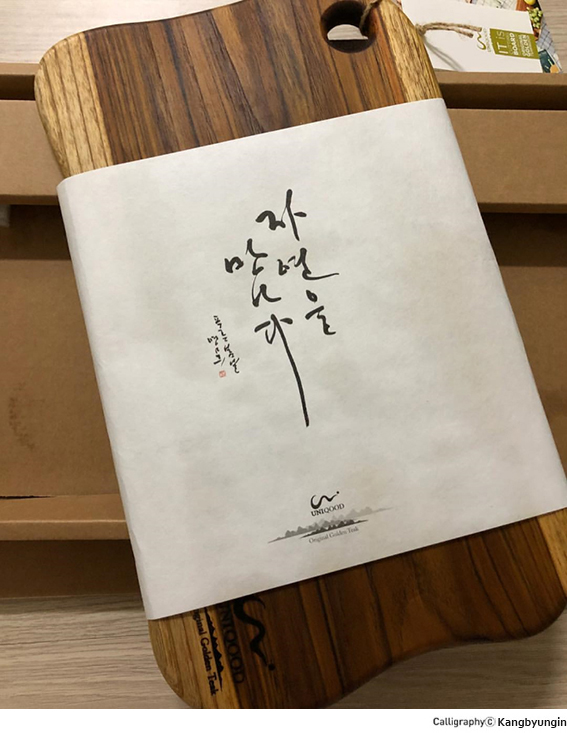 자연을
만나다
푸른봄날
영묵
UNIQOOD
Original Golden Teak
UNIQOOD
Original Golden Teak
IT is
BOARD
Calligraphyⓒ Kangbyungin